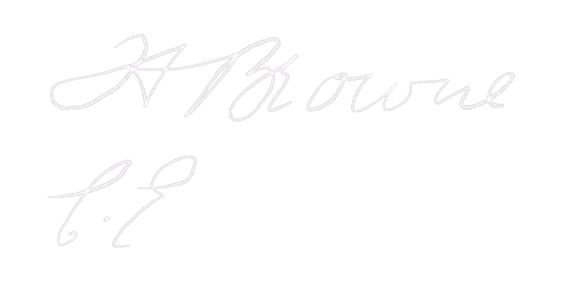 H Browne
C. E